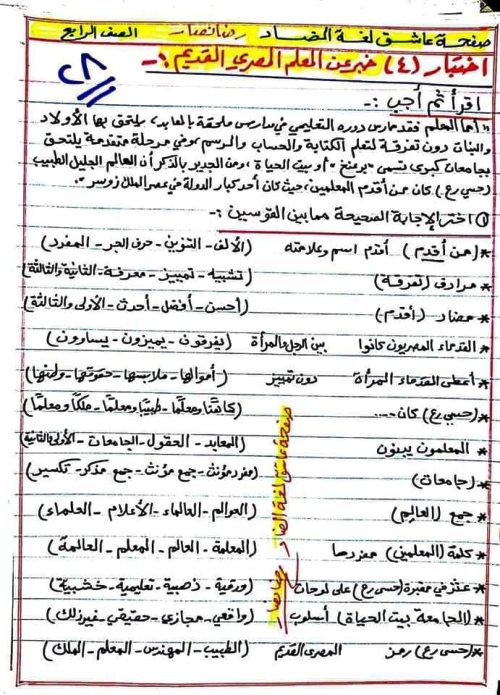 صفحة عاشق لغة الضاد رضا نصار الصف الرابع
اختبار (٤) خبر عن المعلم المصرى القديم :-
٢٨
اقرأ ثم أجب :-
" أما المعلم فقد مارس دوره التعليمي في مدارس ملحقة بالمعابد، يلتحق بها الأولاد
والبنات دون تفرقة لتعلم الكتابة والحساب والرسم، وفي مرحلة متقدمة يلتحق
بجامعات كبرى تسمى "برعنخ" أو بيت الحياة، ومن الجدير بالذكر أن العالم الجليل الطبيب
(حسي رع) كان من أقدم المعلمين، حيث كان أحد كبار الدولة في عصر الملك زوسر".
① اختر الإجابة الصحيحة مما بين القوسين :-
* (من أقدم) أقدم اسم وعلامته (الألف - التنوين - حرف الجر - المفرد)
* مرادف (تفرقة) (تشبيه - تمييز - معرفة - الثانية والثالثة)
* مضاد (أقدم) (أحسن - أفضل - أحدث - الأولى والثالثة)
* القدماء المصريون كانوا بين الرجل والمرأة (يفرقون - يميزون - يساوون)
* أعطى القدماء المرأة دون تمييز (أموالها - ملابسها - حقوقها - وطنها)
* (حسي رع) كان .... (كاتبًا ومعلمًا - طبيبًا ومعلمًا - ملكًا ومعلمًا)
* المعلمون يبنون (المعابد - العقول - الجامعات - الأولى والثانية)
* (جامعات) (مفرد مؤنث - جمع مؤنث - جمع مذكر - تكسير)
* جمع (العالِم) (العوالم - العالماء - الأعلام - العلماء)
* كلمة (المعلمين) مفردها (المعلمة - العالم - المعلم - العالمة)
* عثر في مقبرة (حسي رع) على لوحات (ورقية - ذهبية - تعليمية - خشبية)
* (الجامعة بيت الحياة) أسلوب (واقعي - مجازي - حقيقي - غير ذلك)
* (حسي رع) رمز المصرى القديم (الطبيب - المهندس - المعلم - الملك)
صفحة عاشق لغة الضاد رضا نصار